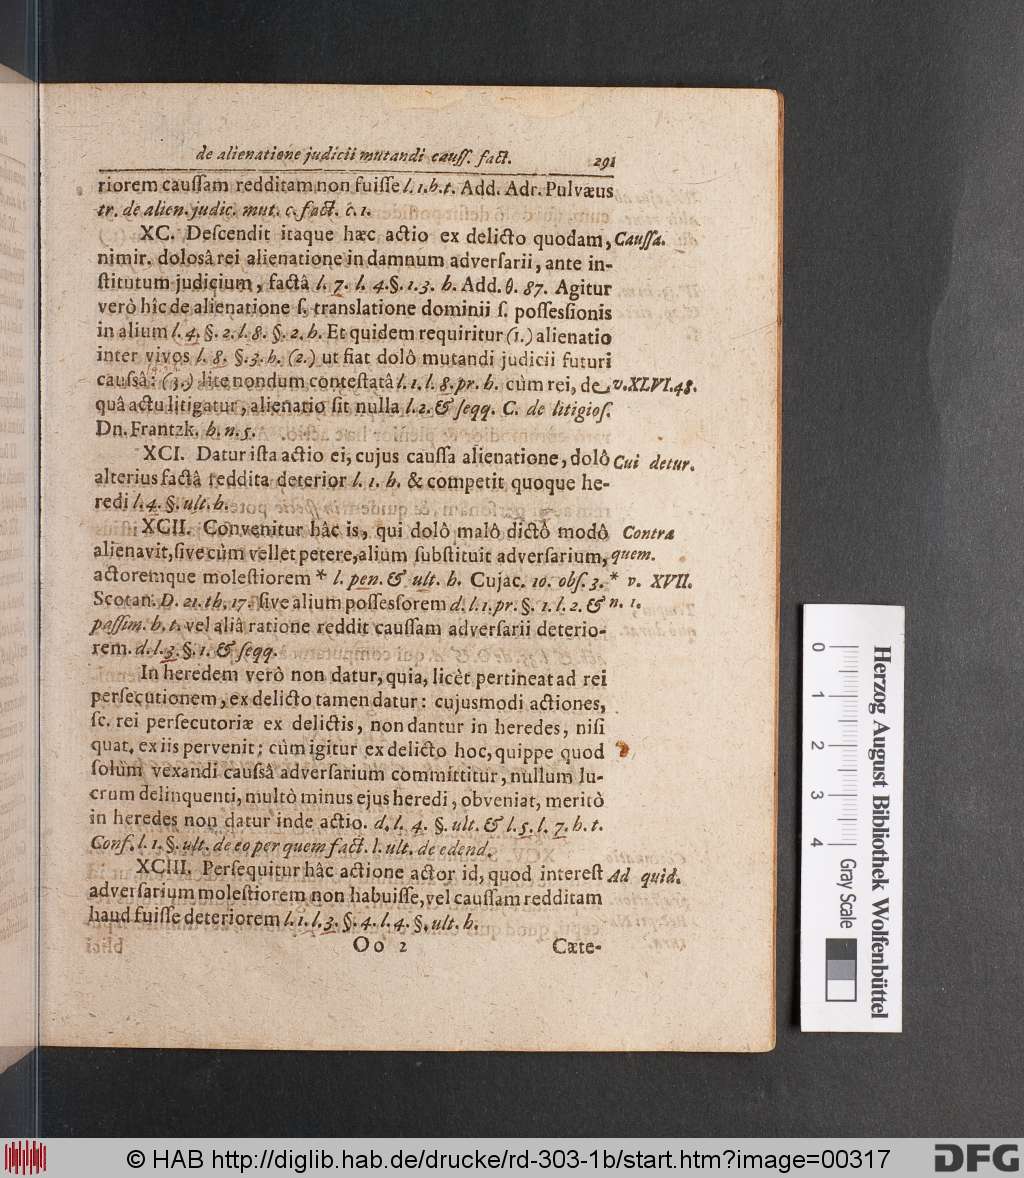 de alienatione judicii mutandi cauſſ. fact. 291
riorem cauſſam redditam non fuiſſe l. 1. h. t. Add. Adr. Pulvæus
tr. de alien. judic. mut. c. fact. c. 1.
XC. Deſcendit itaque hæc actio ex delicto quodam, Cauſſa.
nimir. dolosâ rei alienatione in damnum adverſarii, ante in-
ſtitutum judicium, factâ l. 7. l. 4. §. 1. 3. h. Add. θ. 87. Agitur
verò hîc de alienatione ſ. translatione dominii ſ. poſſeſſionis
in alium l. 4. §. 2. l. 8. §. 2. h. Et quidem requiritur (1.) alienatio
inter vivos l. 8. §. 3. h. (2.) ut fiat dolô mutandi judicii futuri
cauſsâ: (3.) lite nondum conteſtatâ l. 1. l. 8. pr. h. cùm rei, de v. XLVI. 48.
quâ actu litigatur, alienatio ſit nulla l. 2. & ſeqq. C. de litigioſ.
Dn. Frantzk. h. n. 5.
XCI. Datur iſta actio ei, cujus cauſſa alienatione, dolô Cui detur.
alterius factâ reddita deterior l. 1. h. & competit quoque he-
redi l. 4. §. ult. h.
XCII. Convenitur hâc is, qui dolô malô dictô modô Contra
alienavit, ſive cùm vellet petere, alium ſubſtituit adverſarium, quem.
actoremque moleſtiorem * l. pen. & ult. h. Cujac. 10. obſ. 3. * v. XVII.
Scotan. D. 21. th. 17. ſive alium poſſeſſorem d. l. 1. pr. §. 1. l. 2. & n. 1.
paſſim. h. t. vel aliâ ratione reddit cauſſam adverſarii deterio-
rem. d. l. 3. §. 1. & ſeqq.
In heredem verò non datur, quia, licèt pertineat ad rei
perſecutionem, ex delicto tamen datur: cujusmodi actiones,
ſc. rei perſecutoriæ ex delictis, non dantur in heredes, niſi
quat. ex iis pervenit; cùm igitur ex delicto hoc, quippe quod
ſolùm vexandi cauſsâ adverſarium committitur, nullum lu-
crum delinquenti, multò minus ejus heredi, obveniat, meritò
in heredes non datur inde actio. d. l. 4. §. ult. & l. 5. l. 7. h. t.
Conf. l. 1. §. ult. de eo per quem fact. l. ult. de edend.
XCIII. Perſequitur hâc actione actor id, quod intereſt Ad quid.
adverſarium moleſtiorem non habuiſſe, vel cauſſam redditam
haud fuiſſe deteriorem l. 1. l. 3. §. 4. l. 4. §. ult. h.
Oo 2 Cæte-
0 1 2 3 4
Gray Scale
Herzog August Bibliothek Wolfenbüttel
© HAB http://diglib.hab.de/drucke/rd-303-1b/start.htm?image=00317
DFG